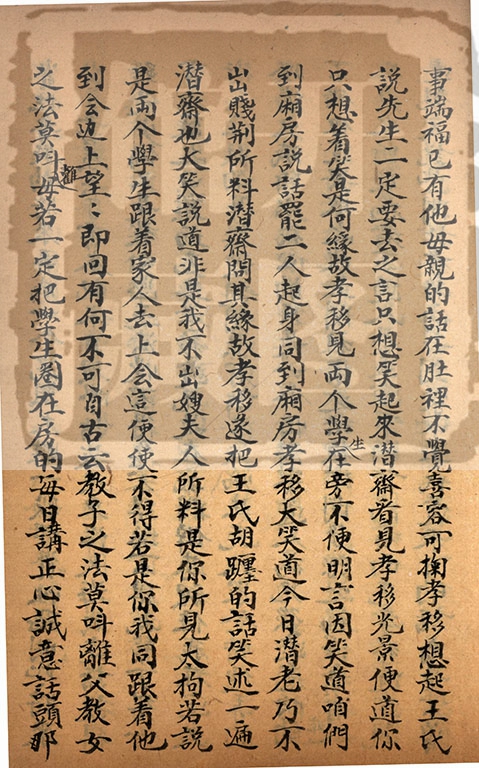 事端福已有他母親的話在肚裡不覺喜容可掬孝移想起王氏
說先生二定要去之言只想笑起來潜齋看見孝移光景便道你
只想着笑是何緣故孝移見两个學生在旁不便明言因笑道咱們
到廂房說話罷二人起身同到廂房孝移大笑道今日潜老乃不
出賤荆所料潜齋問其緣故孝移遂把王氏胡躔的話笑述一遍
潜齋也大笑說道非是我不出嫂夫人所料是你所見太拘若說
是两个學生跟着家人去上会這便使不得若是你我同跟着他
到会边上望：即回有何不可自古云教子之法莫呌離父教女
之法莫呌離母若一定把學生圈在房的每日講正心誠意話頭那